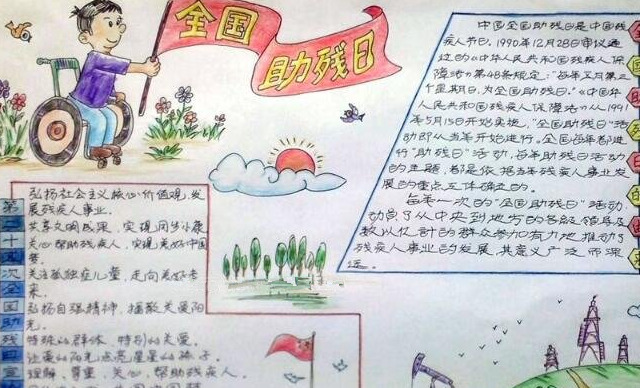 全国
助残日
中国全国助残日是中国残
疾人节日。1990年12月28日审议通
过的《中华人民共和国残疾人保
障法》第48条规定：“每年五月第三
个星期日，为全国助残日。”《中华
人民共和国残疾人保障法》从1991
年5月15日开始实施，“全国助残日”活
动即从当年开始进行。全国每年都进
行“助残日”活动，每年助残日活动
的主题，都是依据当年残疾人事业发
展的重点工作确立的。
每年一次的“全国助残日”活动，
动员了从中央到地方的各级领导及
数以亿计的群众参加有力地推动了
残疾人事业的发展，其意义广泛而深
远。
弘扬社会主义核心价值观，发
展残疾人事业。
共享文明成果，实现同步小康
关心帮助残疾人，实现美好中国
梦。
关注孤独症儿童，走向美好未
来。
弘扬自强精神，播散关爱阳
光。
特殊的群体，特别的关爱。
让爱的阳光点亮星星的孩子。
理解、尊重、关心、帮助残疾人。
第
十
次
全
国
助
残
日
宣